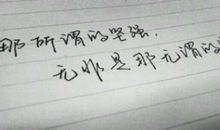 那所谓的坚强.
无非是那无谓的